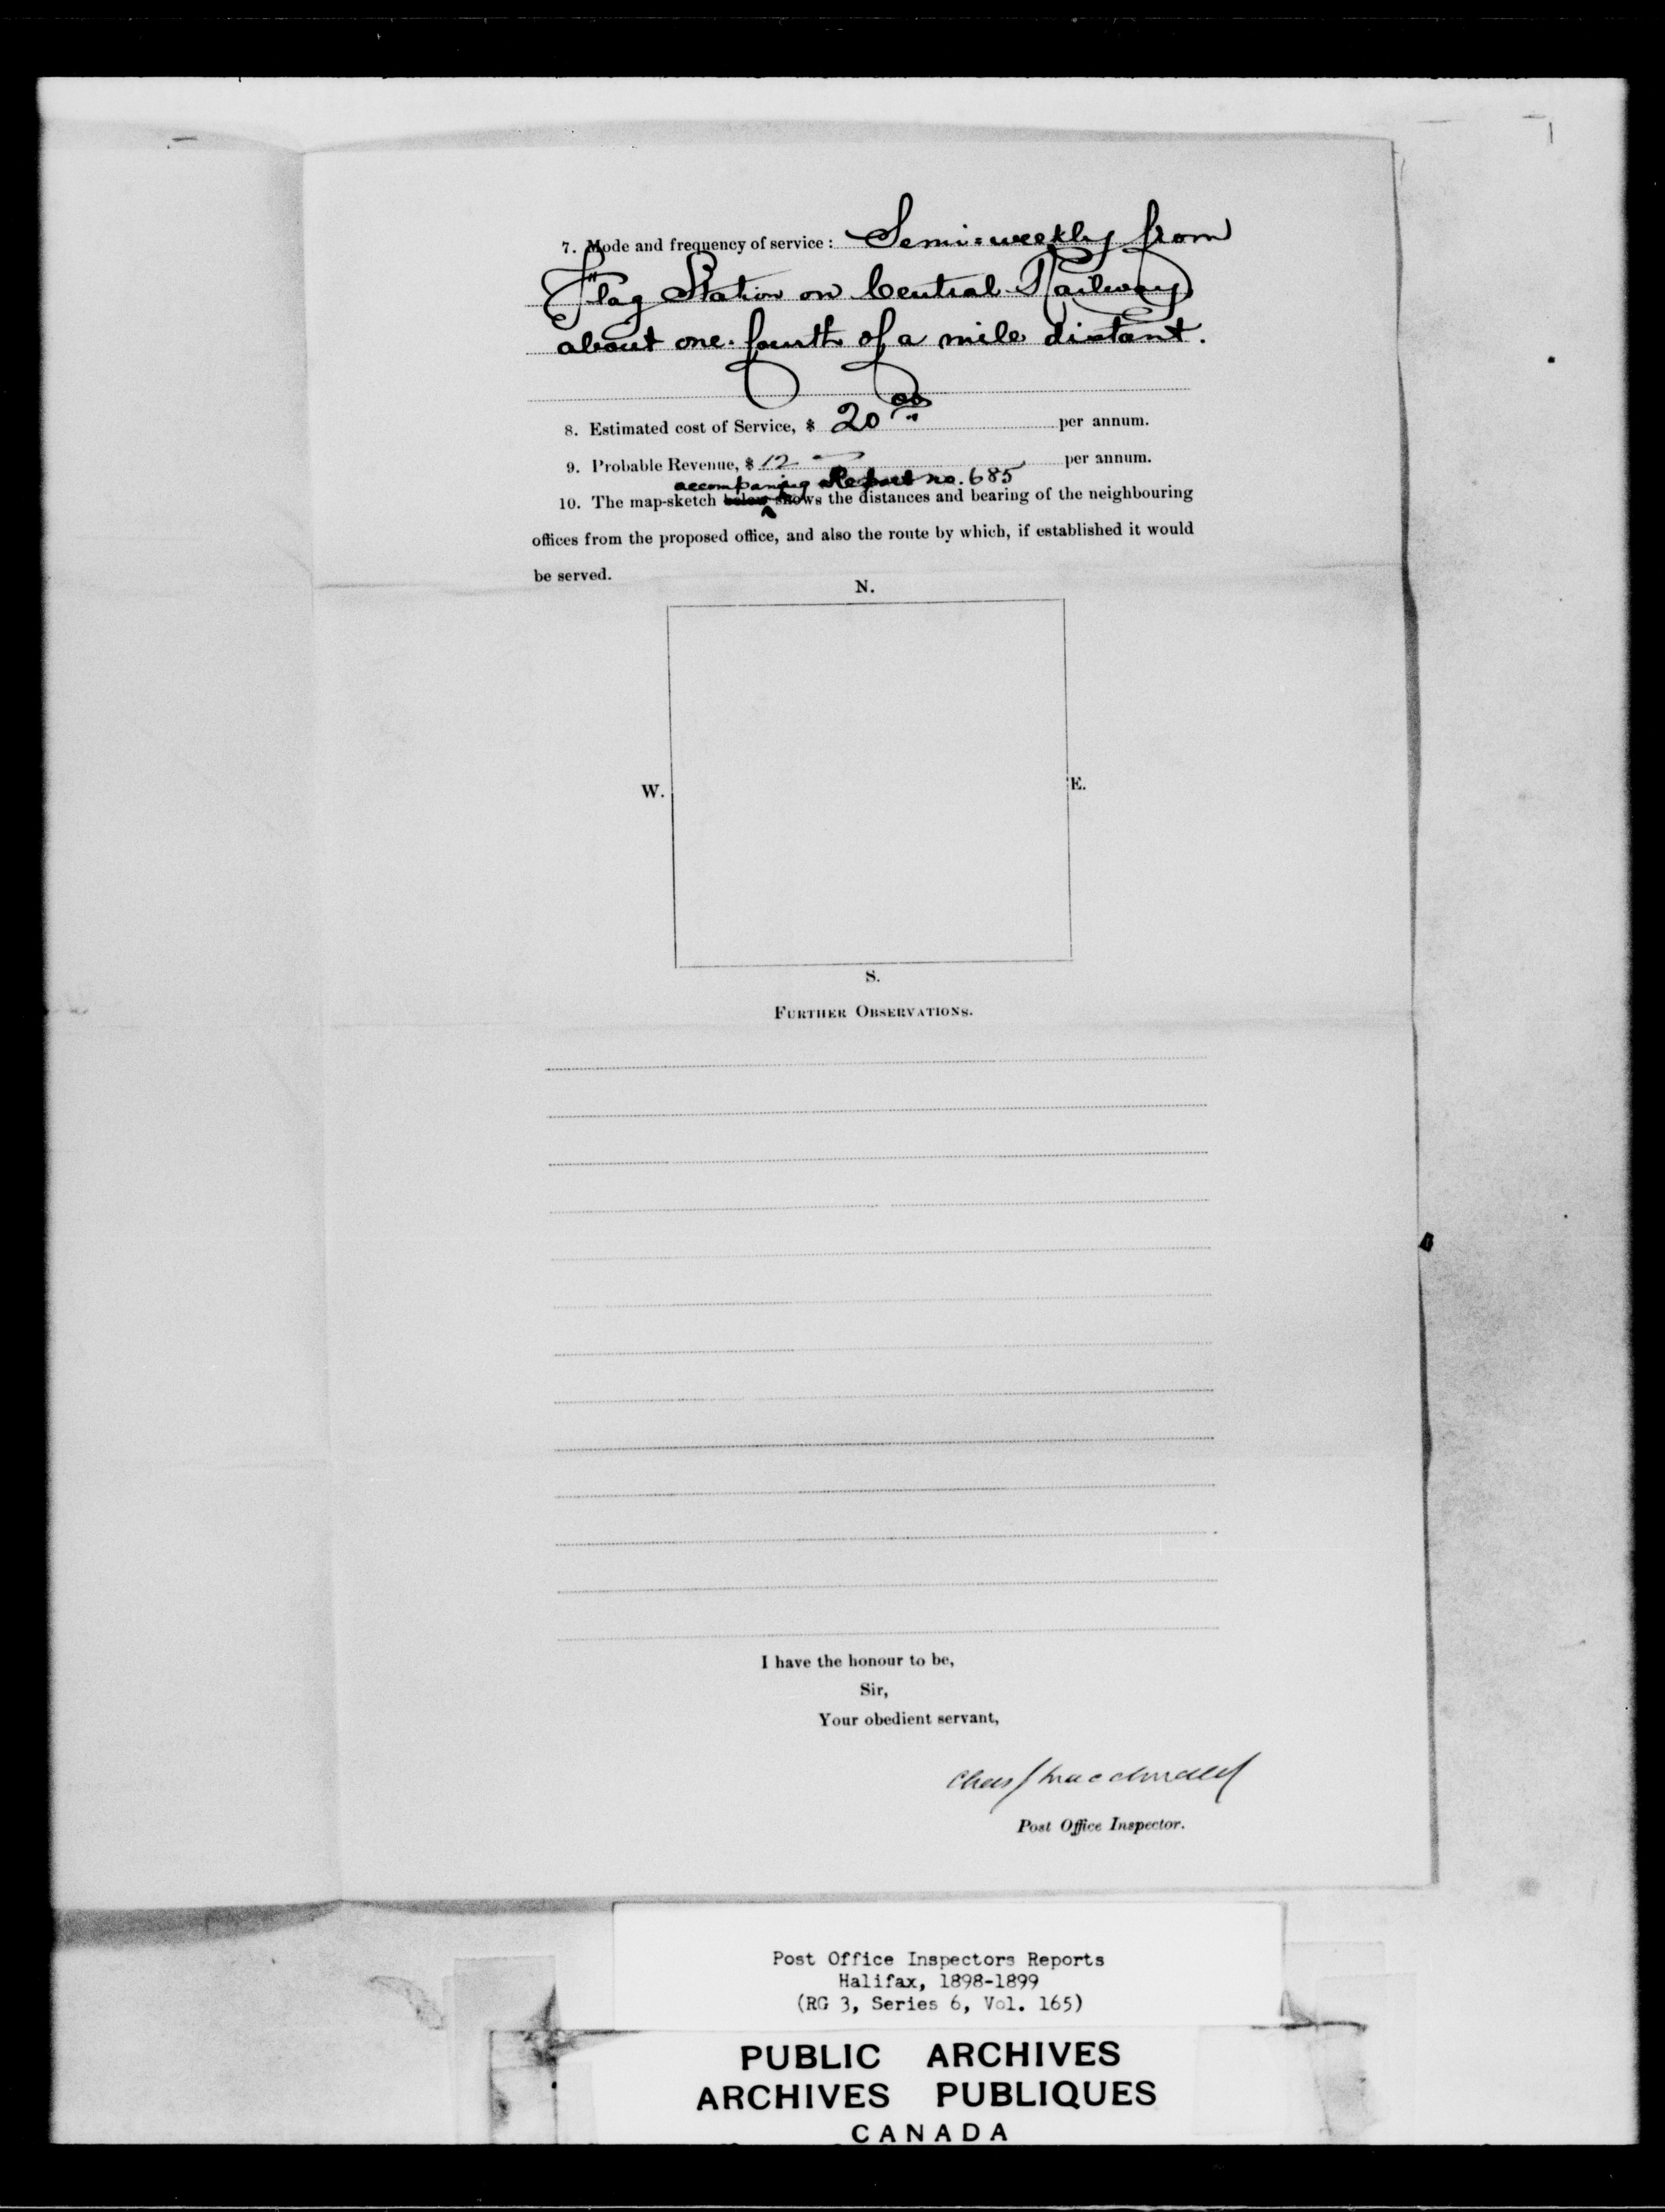 7. Mode and frequency of service: Semi-weekly from
Flag Station on Central Railway
about one-fourth of a mile distant.
8. Estimated cost of Service, $ 20 00 per annum.
9. Probable Revenue, $ 12 — per annum.
accompanying Report no. 685
10. The map-sketch below shows the distances and bearing of the neighbouring
offices from the proposed office, and also the route by which, if established it would
be served.
N.
W. E.
S.
FURTHER OBSERVATIONS.
I have the honour to be,
Sir,
Your obedient servant,
Chas J Macdonald
Post Office Inspector.
Post Office Inspectors Reports
Halifax, 1898-1899
(RG 3, Series 6, Vol. 165)
PUBLIC ARCHIVES
ARCHIVES PUBLIQUES
CANADA